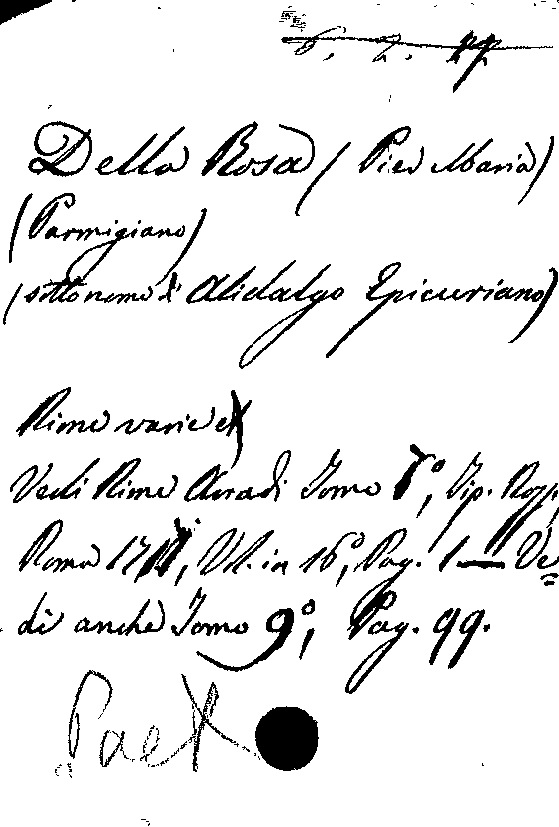 6. 2. 27
Della Rosa (Pier Maria)
(Parmigiano)
(sotto nome d' Alidalgo Epicuriano)
Rime varie
Vedi Rime Arcadi Tomo °, Tip. Rossi,
Roma 17, Vol. in 16°, Pag. 1 — Ve
di anche Tomo 9°, Pag. 99.